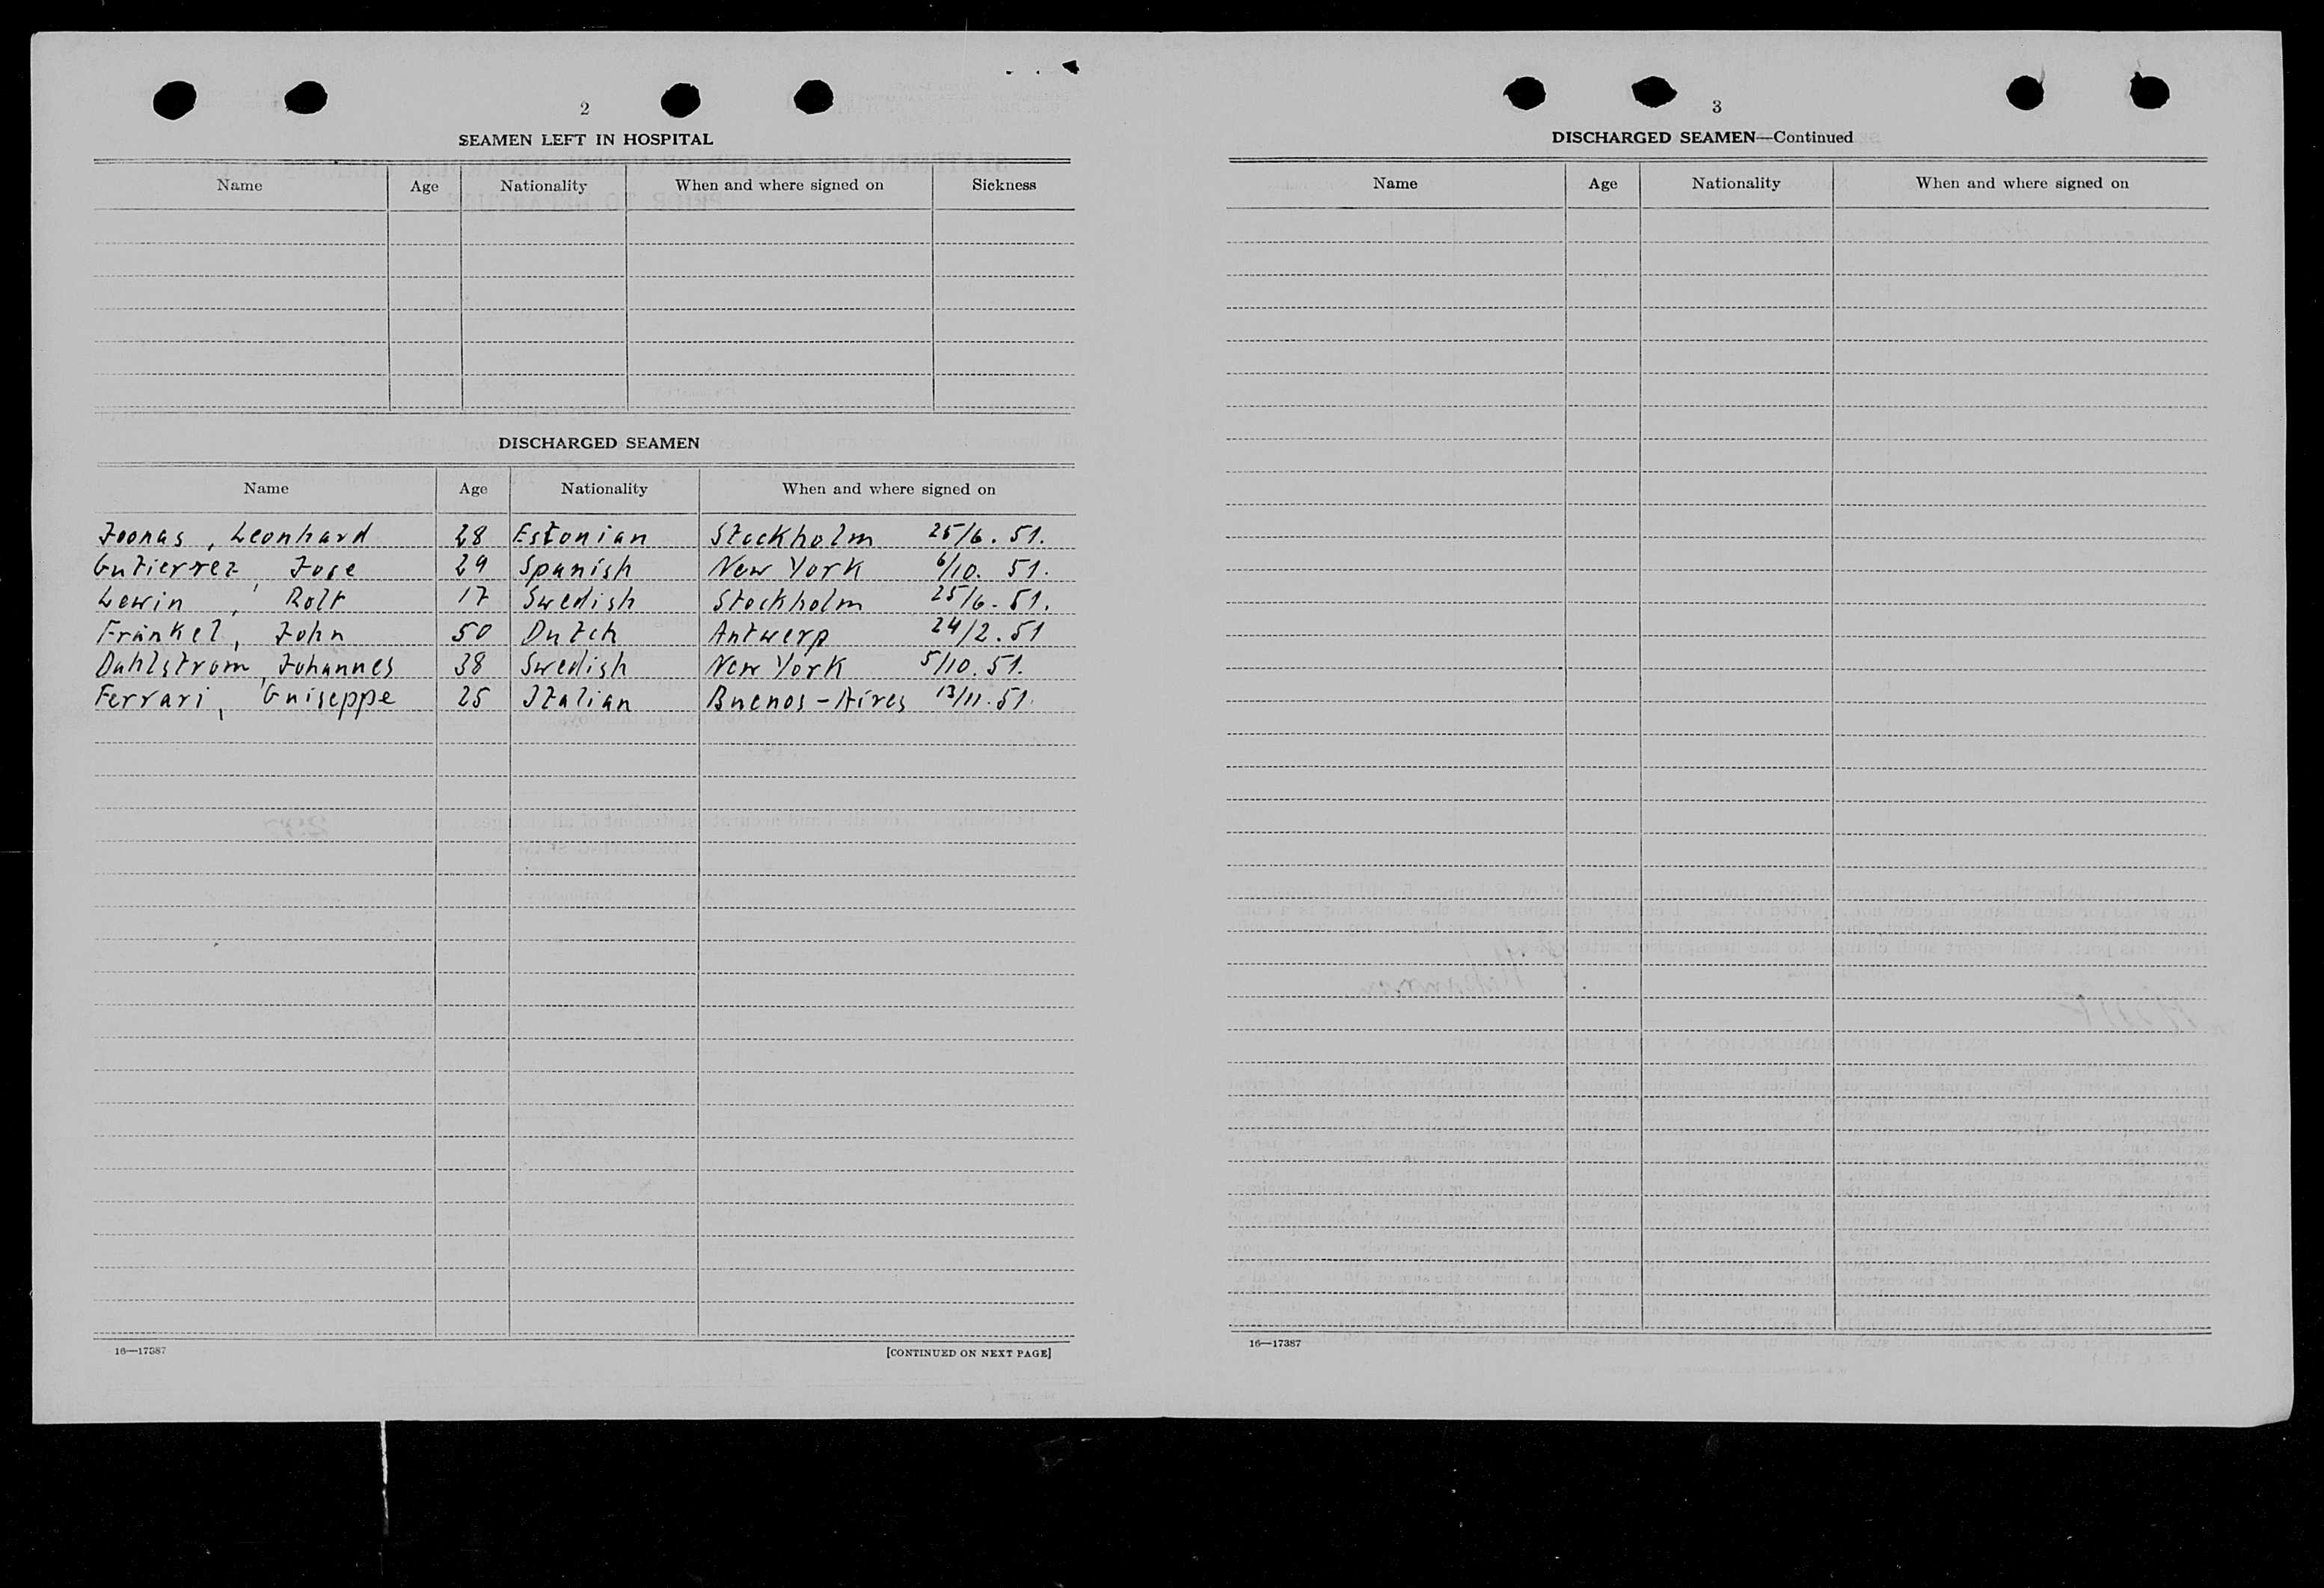 2
SEAMEN LEFT IN HOSPITAL
Name Age Nationality When and where signed on Sickness
DISCHARGED SEAMEN
Name Age Nationality When and where signed on
Joonas, Leonhard 28 Estonian Stockholm 25/6. 51.
Gutierrez, Jose 29 Spanish New York 6/10. 51.
Lewin, Rolf 17 Swedish Stockholm 25/6. 51.
Fränkel, John 50 Dutch Antwerp 24/2. 51
Dahlstrom, Johannes 38 Swedish New York 5/10. 51.
Ferrari, Guiseppe 25 Italian Buenos-Aires 13/11. 51.
16—17387 [CONTINUED ON NEXT PAGE]
3
DISCHARGED SEAMEN—Continued
Name Age Nationality When and where signed on
16—17387